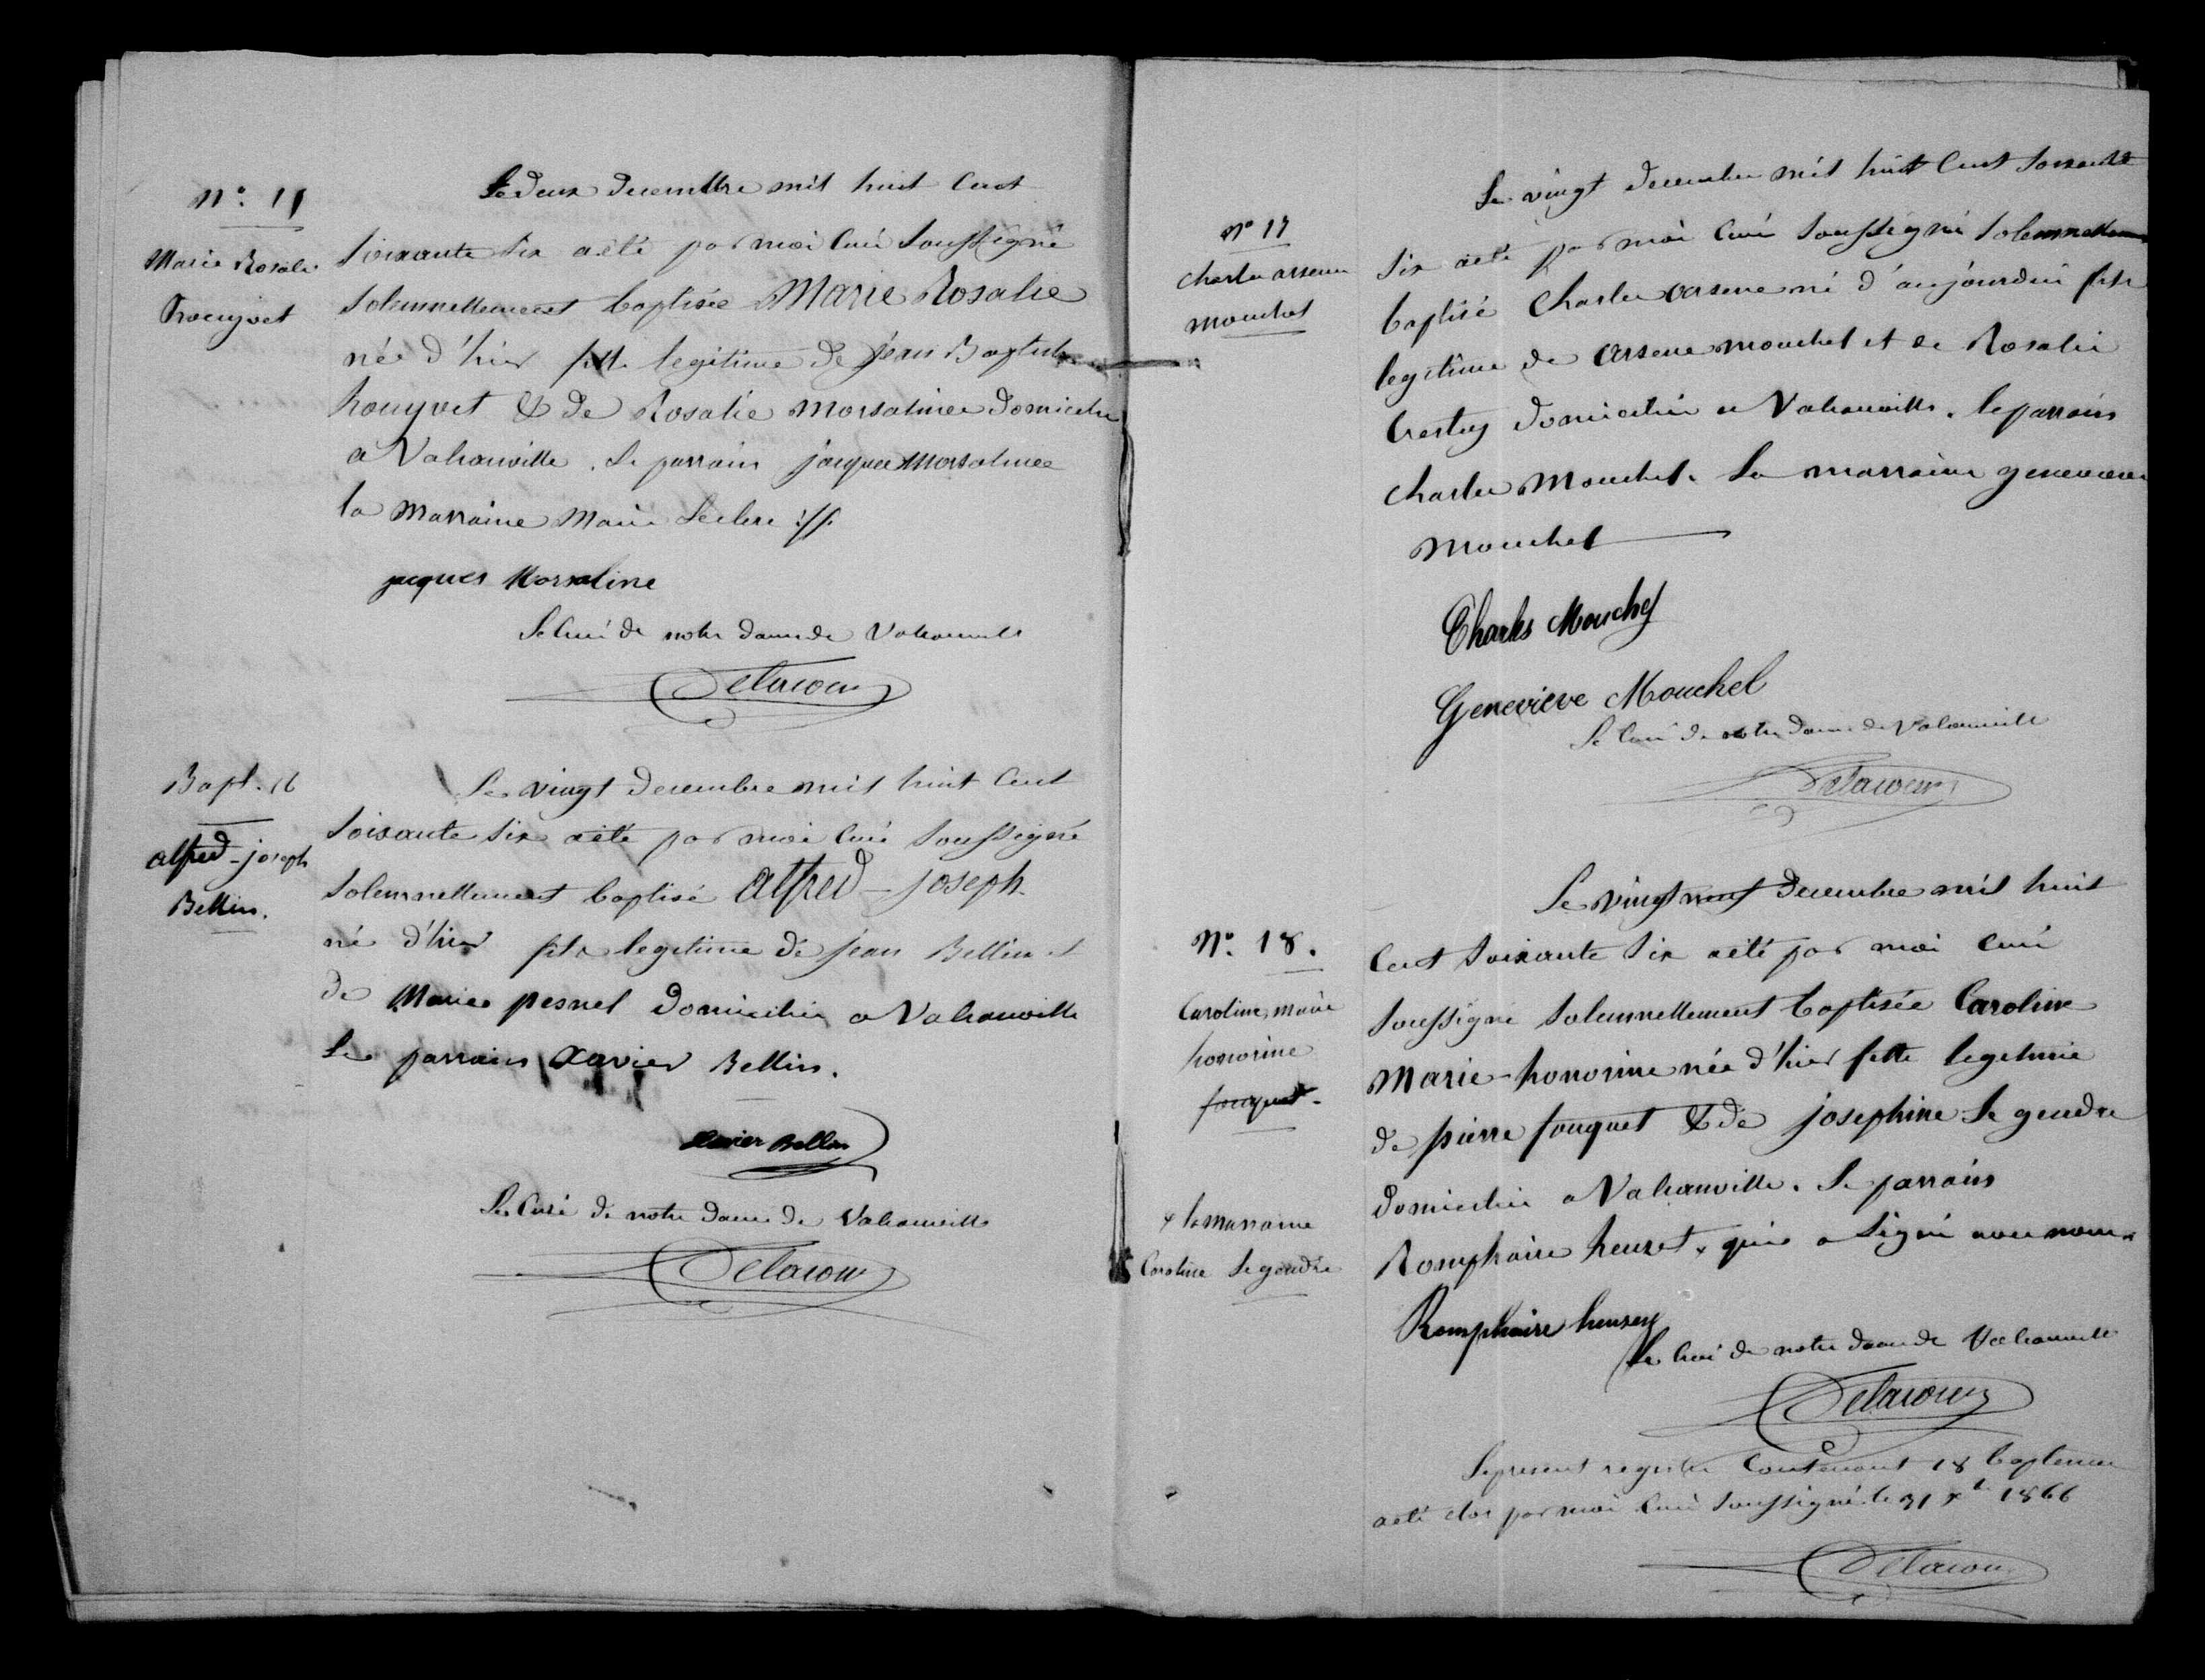 N° 15
Marie Rosalie
Le deux decembre mil huit cent
soixante six a été par moi curé soussigné
solennellement baptisée Marie Rosalie
née d'hier fille legitime de jean Baptiste
& de Rosalie Morsalinee domicilies
a Valcanville. Le parrain jacques Morsalinee
la marraine Marie Leclerc
jacques Morsaline
Le curé de notre dame de Valcanville
Delacour
Bapt. 16
alfred - joseph
Bellin.
Le vingt decembre mil huit cent
soixante six a été par moi curé soussigné
solennellement baptisé alfred - joseph
né d'hier fils legitime de jean Bellin et
de Marie pesnel domicilies a Valcanville
Le parrain Xavier Bellin.
Xavier Bellin
Le Curé de notre dame de Valcanville
Delacour
N° 17
Charles arsene
mouchel
Le vingt decembre mil huit cent soixante
six a été par moi curé soussigné solennellement
baptisé Charles arsene né d'aujourdui fils
legitime de arsene mouchel et de Rosalie
domiciliés a Valcanville. le parrain
Charles Mouchel. La marraine genevieve
Mouchel
Charles Mouchel
Geneviève Mouchel
Le Curé de notre dame de Valcanville
Delacour
N° 18.
Caroline marie
honorine
fouquet.
Le vingt neuf decembre mil huit
cent soixante six a été par moi curé
soussigné solennellement baptisée Caroline
Marie-honorine née d'hier fille legitime
de pierre fouquet & de josephine Le gendre
domiciliés a Valcanville. Le parrain
Romphaire heuzet x qui a signé avec nous
x la marraine
Caroline Le gendre
Romphaire heuzey
Le Curé de notre dame de Valcanville
Delacour
Le present registre contenant 18 baptemes
a été clos par moi curé soussigné le 31 Xbre 1866
Delacour